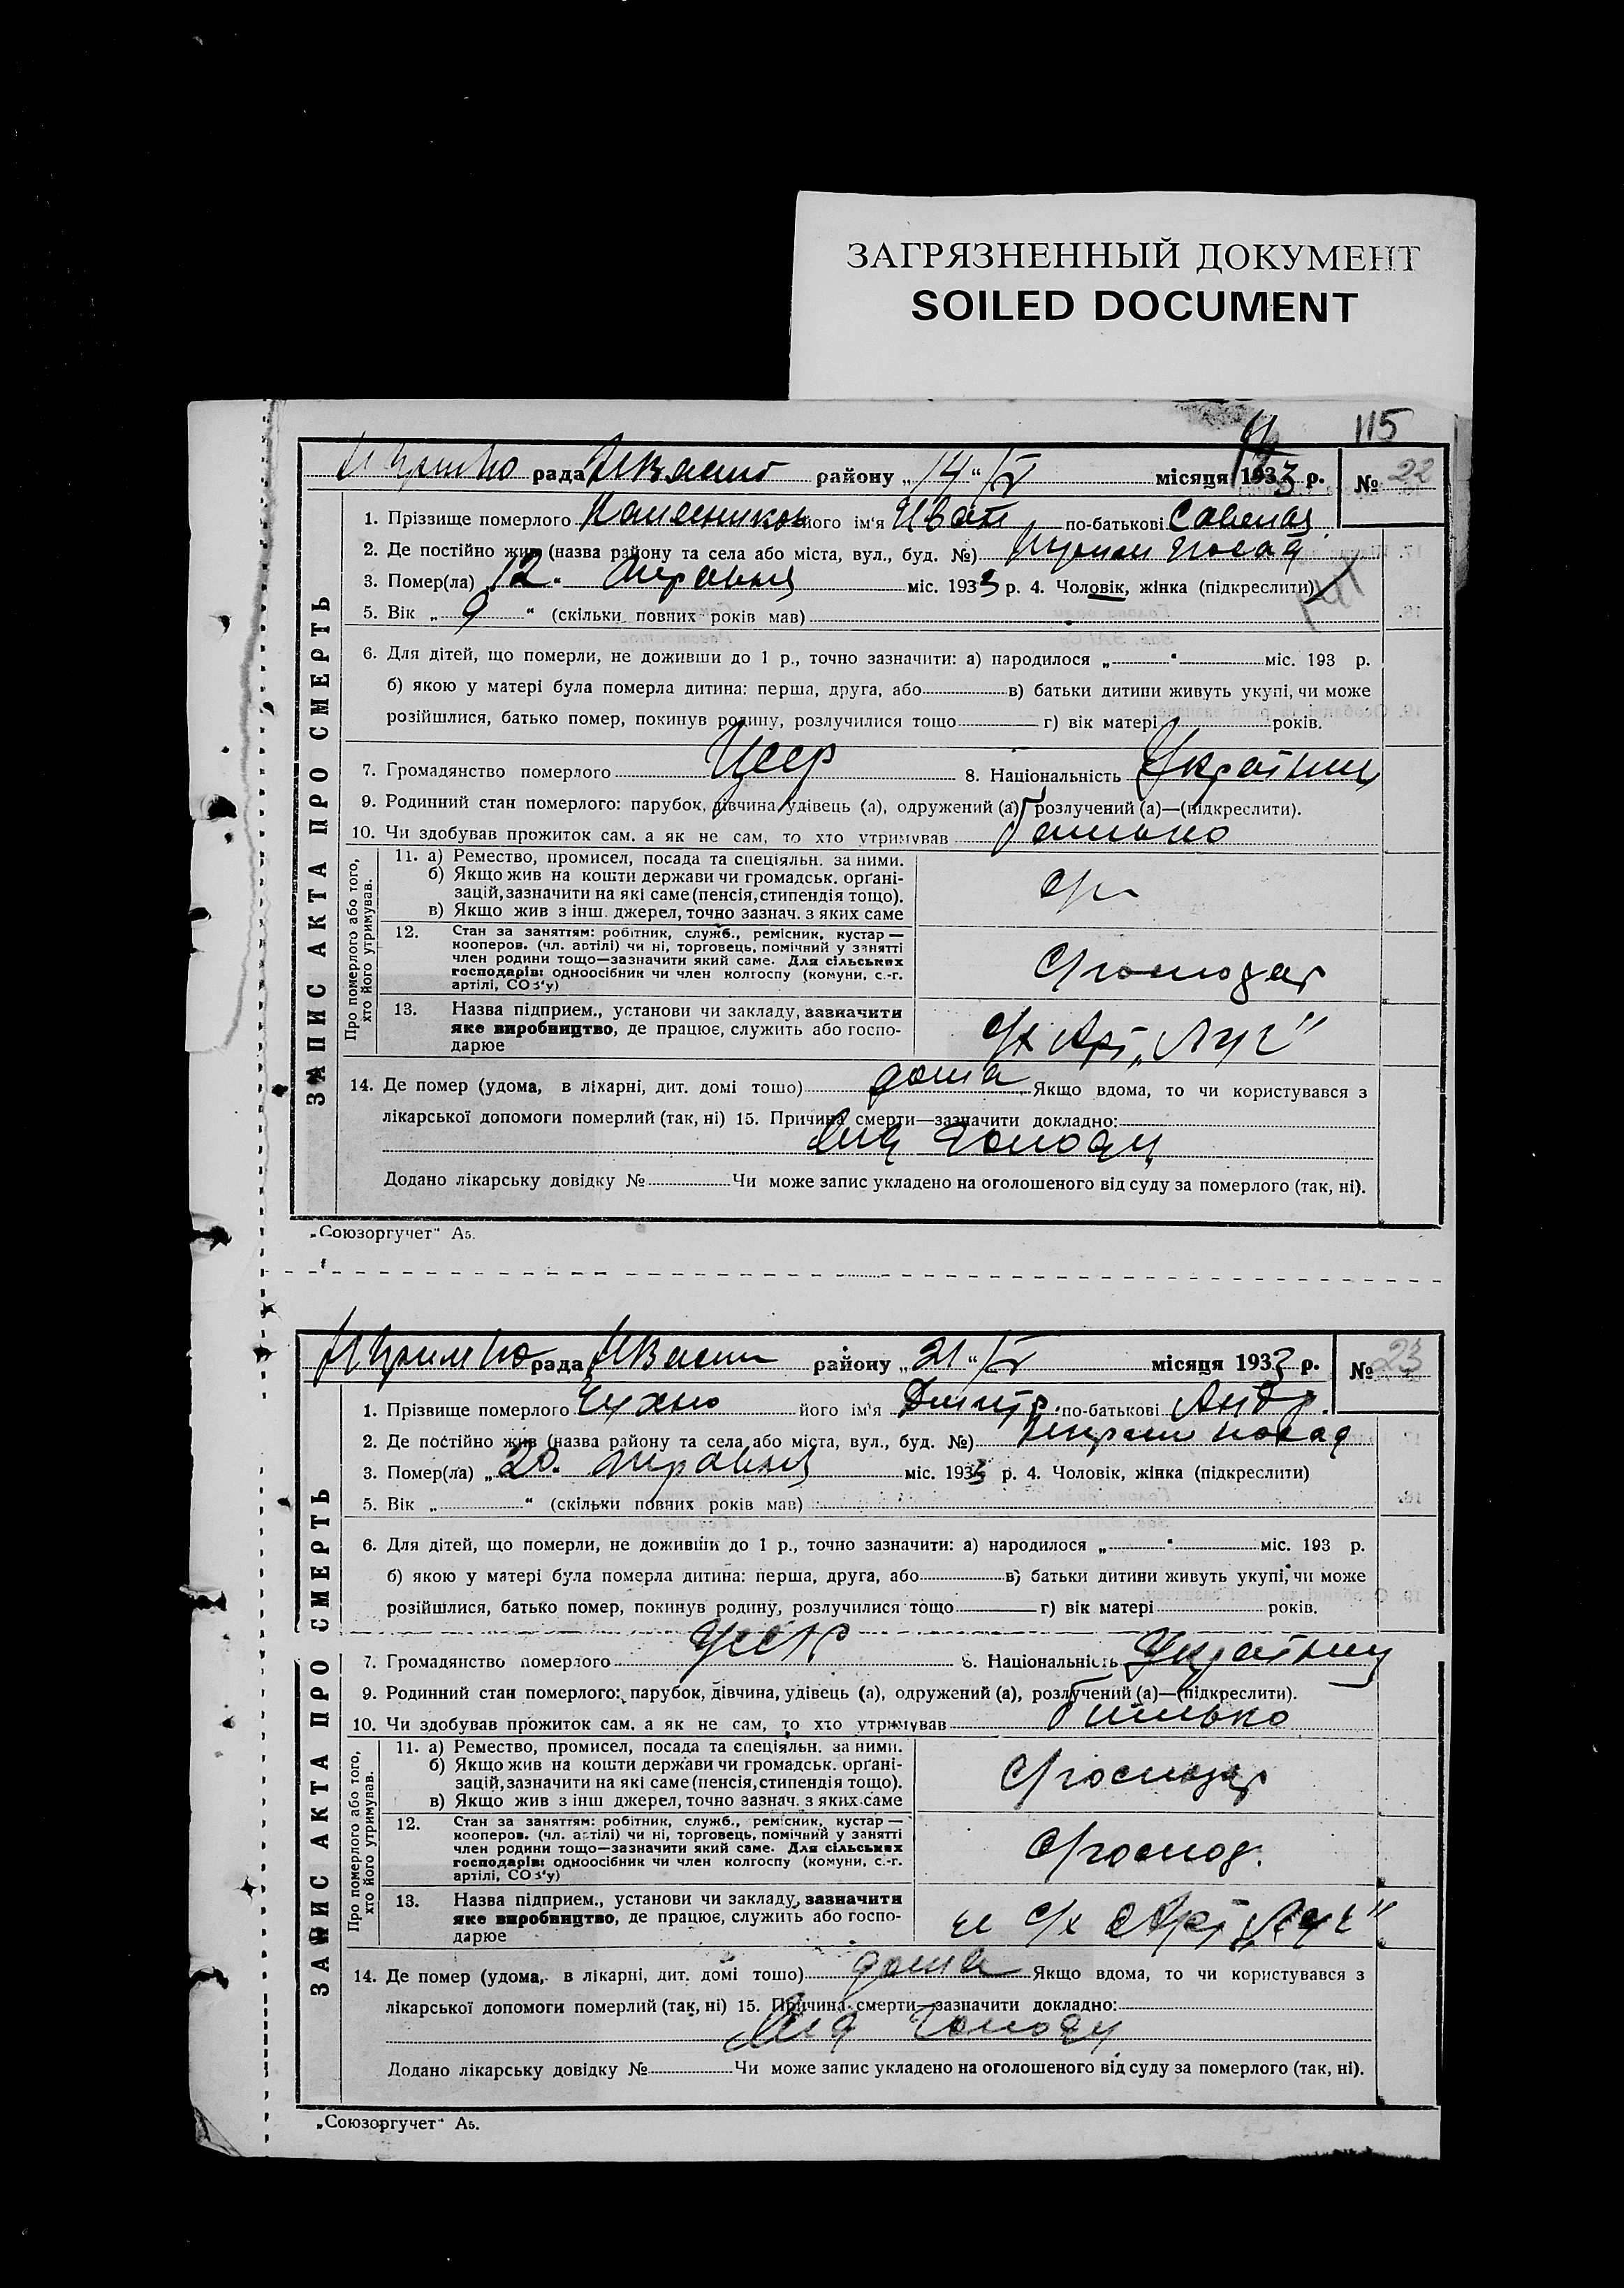 ЗАГРЯЗНЕННЫЙ ДОКУМЕНТ
SOILED DOCUMENT
115
рада району „14“ IV місяця 1933 р. № 22
ЗАПИС АКТА ПРО СМЕРТЬ
1. Прізвище померлого його ім'я Иван по-батькові
2. Де постійно жив (назва району та села або міста, вул., буд. №)
3. Помер(ла) „12“ травня міс. 1933 р. 4. Чоловік, жінка (підкреслити)
5. Вік „9“ (скільки повних років мав)
6. Для дітей, що померли, не доживши до 1 р., точно зазначити: а) народилося „ “ міс. 193 р.
б) якою у матері була померла дитина: перша, друга, або в) батьки дитини живуть укупі, чи може
розійшлися, батько помер, покинув родину, розлучилися тощо г) вік матері років.
7. Громадянство померлого УССР 8. Національність Українец
9. Родинний стан померлого: парубок, дівчина, удівець (а), одружений (а), розлучений (а)—(підкреслити).
10. Чи здобував прожиток сам, а як не сам, то хто утримував батько
Про померлого або того, хто його утримував.
11. а) Ремество, промисел, посада та спеціяльн. за ними.
б) Якщо жив на кошти держави чи громадськ. орґані-
зацій, зазначити на які саме (пенсія, стипендія тощо).
в) Якщо жив з інш. джерел, точно зазнач. з яких саме
12. Стан за заняттям: робітник, служб., ремісник, кустар—
кооперов. (чл. артілі) чи ні, торговець, помічний у занятті
член родини тощо—зазначити який саме. Для сільських
господарів: одноосібник чи член колгоспу (комуни, с.-г.
артілі, СОЗ'у)
с/господар
13. Назва підприєм., установи чи закладу, зазначити
яке виробництво, де працює, служить або госпо-
дарює
с/х Арт. „Луч“
14. Де помер (удома, в лікарні, дит. домі тощо) дома Якщо вдома, то чи користувався з
лікарської допомоги померлий (так, ні) 15. Причина смерти—зазначити докладно:
Від голоду
Додано лікарську довідку № Чи може запис укладено на оголошеного від суду за померлого (так, ні).
„Союзоргучет“ А5.
рада району „21“ IV місяця 1933 р. № 23
ЗАПИС АКТА ПРО СМЕРТЬ
1. Прізвище померлого Чухно його ім'я Дмитр. по-батькові Андр.
2. Де постійно жив (назва району та села або міста, вул., буд. №)
3. Помер(ла) „20“ травня міс. 1933 р. 4. Чоловік, жінка (підкреслити)
5. Вік „ “ (скільки повних років мав)
6. Для дітей, що померли, не доживши до 1 р., точно зазначити: а) народилося „ “ міс. 193 р.
б) якою у матері була померла дитина: перша, друга, або в) батьки дитини живуть укупі, чи може
розійшлися, батько помер, покинув родину, розлучилися тощо г) вік матері років.
7. Громадянство померлого УССР 8. Національність Українец
9. Родинний стан померлого: парубок, дівчина, удівець (а), одружений (а), розлучений (а)—(підкреслити).
10. Чи здобував прожиток сам, а як не сам, то хто утримував батько
Про померлого або того, хто його утримував.
11. а) Ремество, промисел, посада та спеціяльн. за ними.
б) Якщо жив на кошти держави чи громадськ. орґані-
зацій, зазначити на які саме (пенсія, стипендія тощо).
в) Якщо жив з інш джерел, точно зазнач. з яких саме
с/господар
12. Стан за заняттям: робітник, служб., ремісник, кустар—
кооперов. (чл. артілі) чи ні, торговець, помічний у занятті
член родини тощо—зазначити який саме. Для сільських
господарів: одноосібник чи член колгоспу (комуни, с.-г.
артілі, СОЗ'у)
с/господ.
13. Назва підприєм., установи чи закладу, зазначити
яке виробництво, де працює, служить або госпо-
дарює
чл с/х Арт. „Луч“
14. Де помер (удома, в лікарні, дит. домі тощо) дома Якщо вдома, то чи користувався з
лікарської допомоги померлий (так, ні) 15. Причина смерти—зазначити докладно:
Від голоду
Додано лікарську довідку № Чи може запис укладено на оголошеного від суду за померлого (так, ні).
„Союзоргучет“ А5.